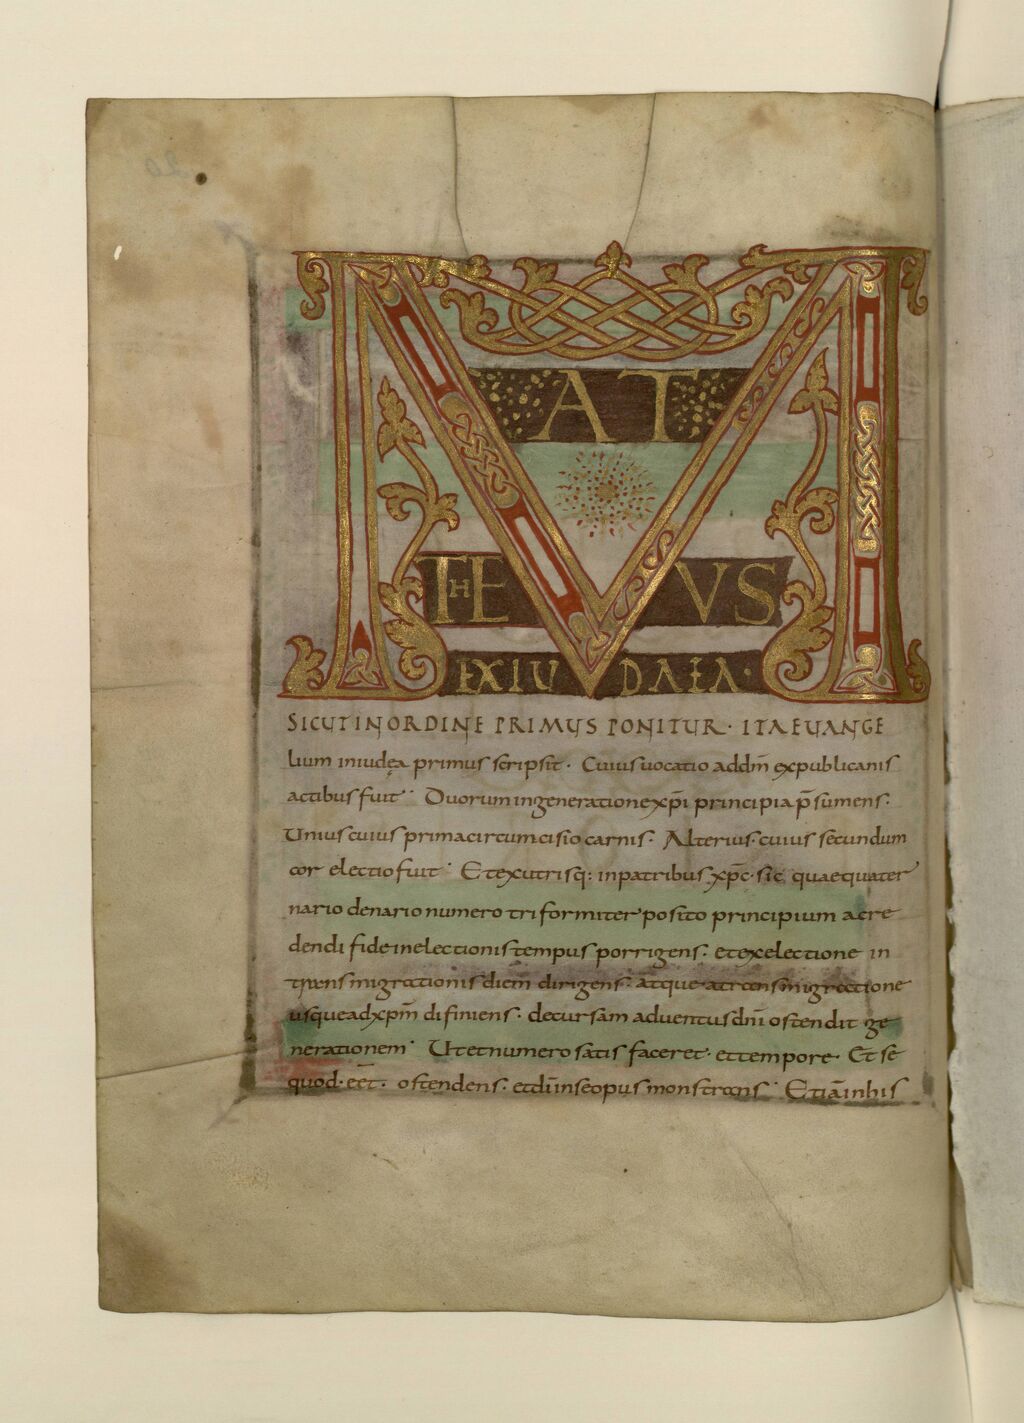 M
AT
THE VS
EX IU DAEA·
SICUT IN ORDINE PRIMUS PONITUR· ITA EUANGE
lium iniudea primus scripsit· Cuius uocatio addm̄ expublicanis
actibus fuit·· Duorum ingeneratione xp̄i principia p̄sumens·
Unius cuius prima circumcisio carnis· Alterius· cuius secundum
cor electio fuit· Et exutrisq: inpatribus xp̄c· sic quaequater
nario denario numero triformiter posito principium acre
dendi fide inelectionis tempus porrigens· et exelectione in
transmigrationis diem dirigens· atque atransmigratione
usquead xp̄m difiniens· decursam aduentus dn̄i ostendit ge
nerationem· Ut et numero satis faceret· et tempore· Et se
quod· eēt· ostendens· et dī inse opus monstrans· Etiā inhis